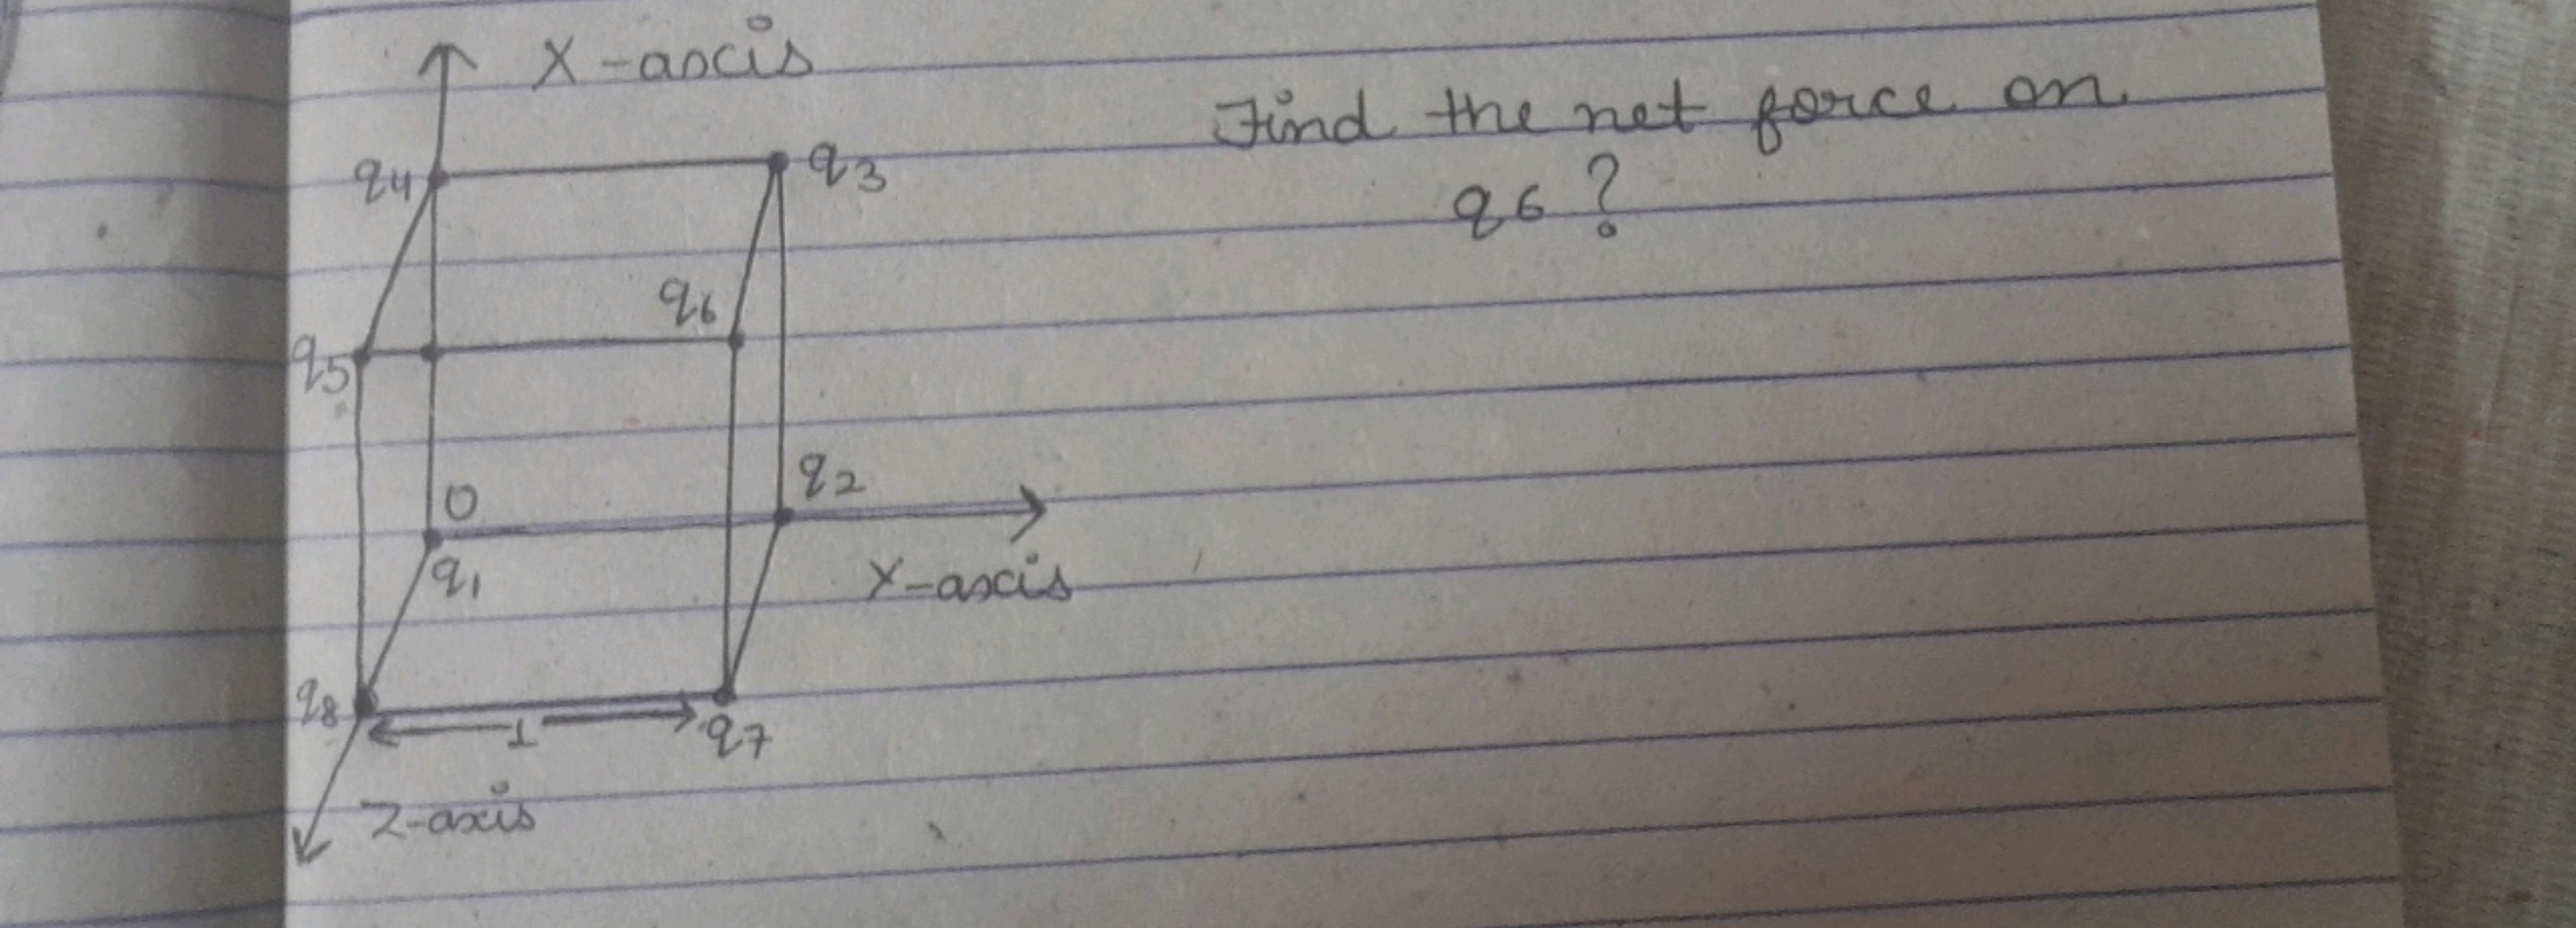 X-axis
Find the net force on
q6?
q4
q3
q6
q5
q2
O
q1
X-axis
q8
1
q7
Z-axis